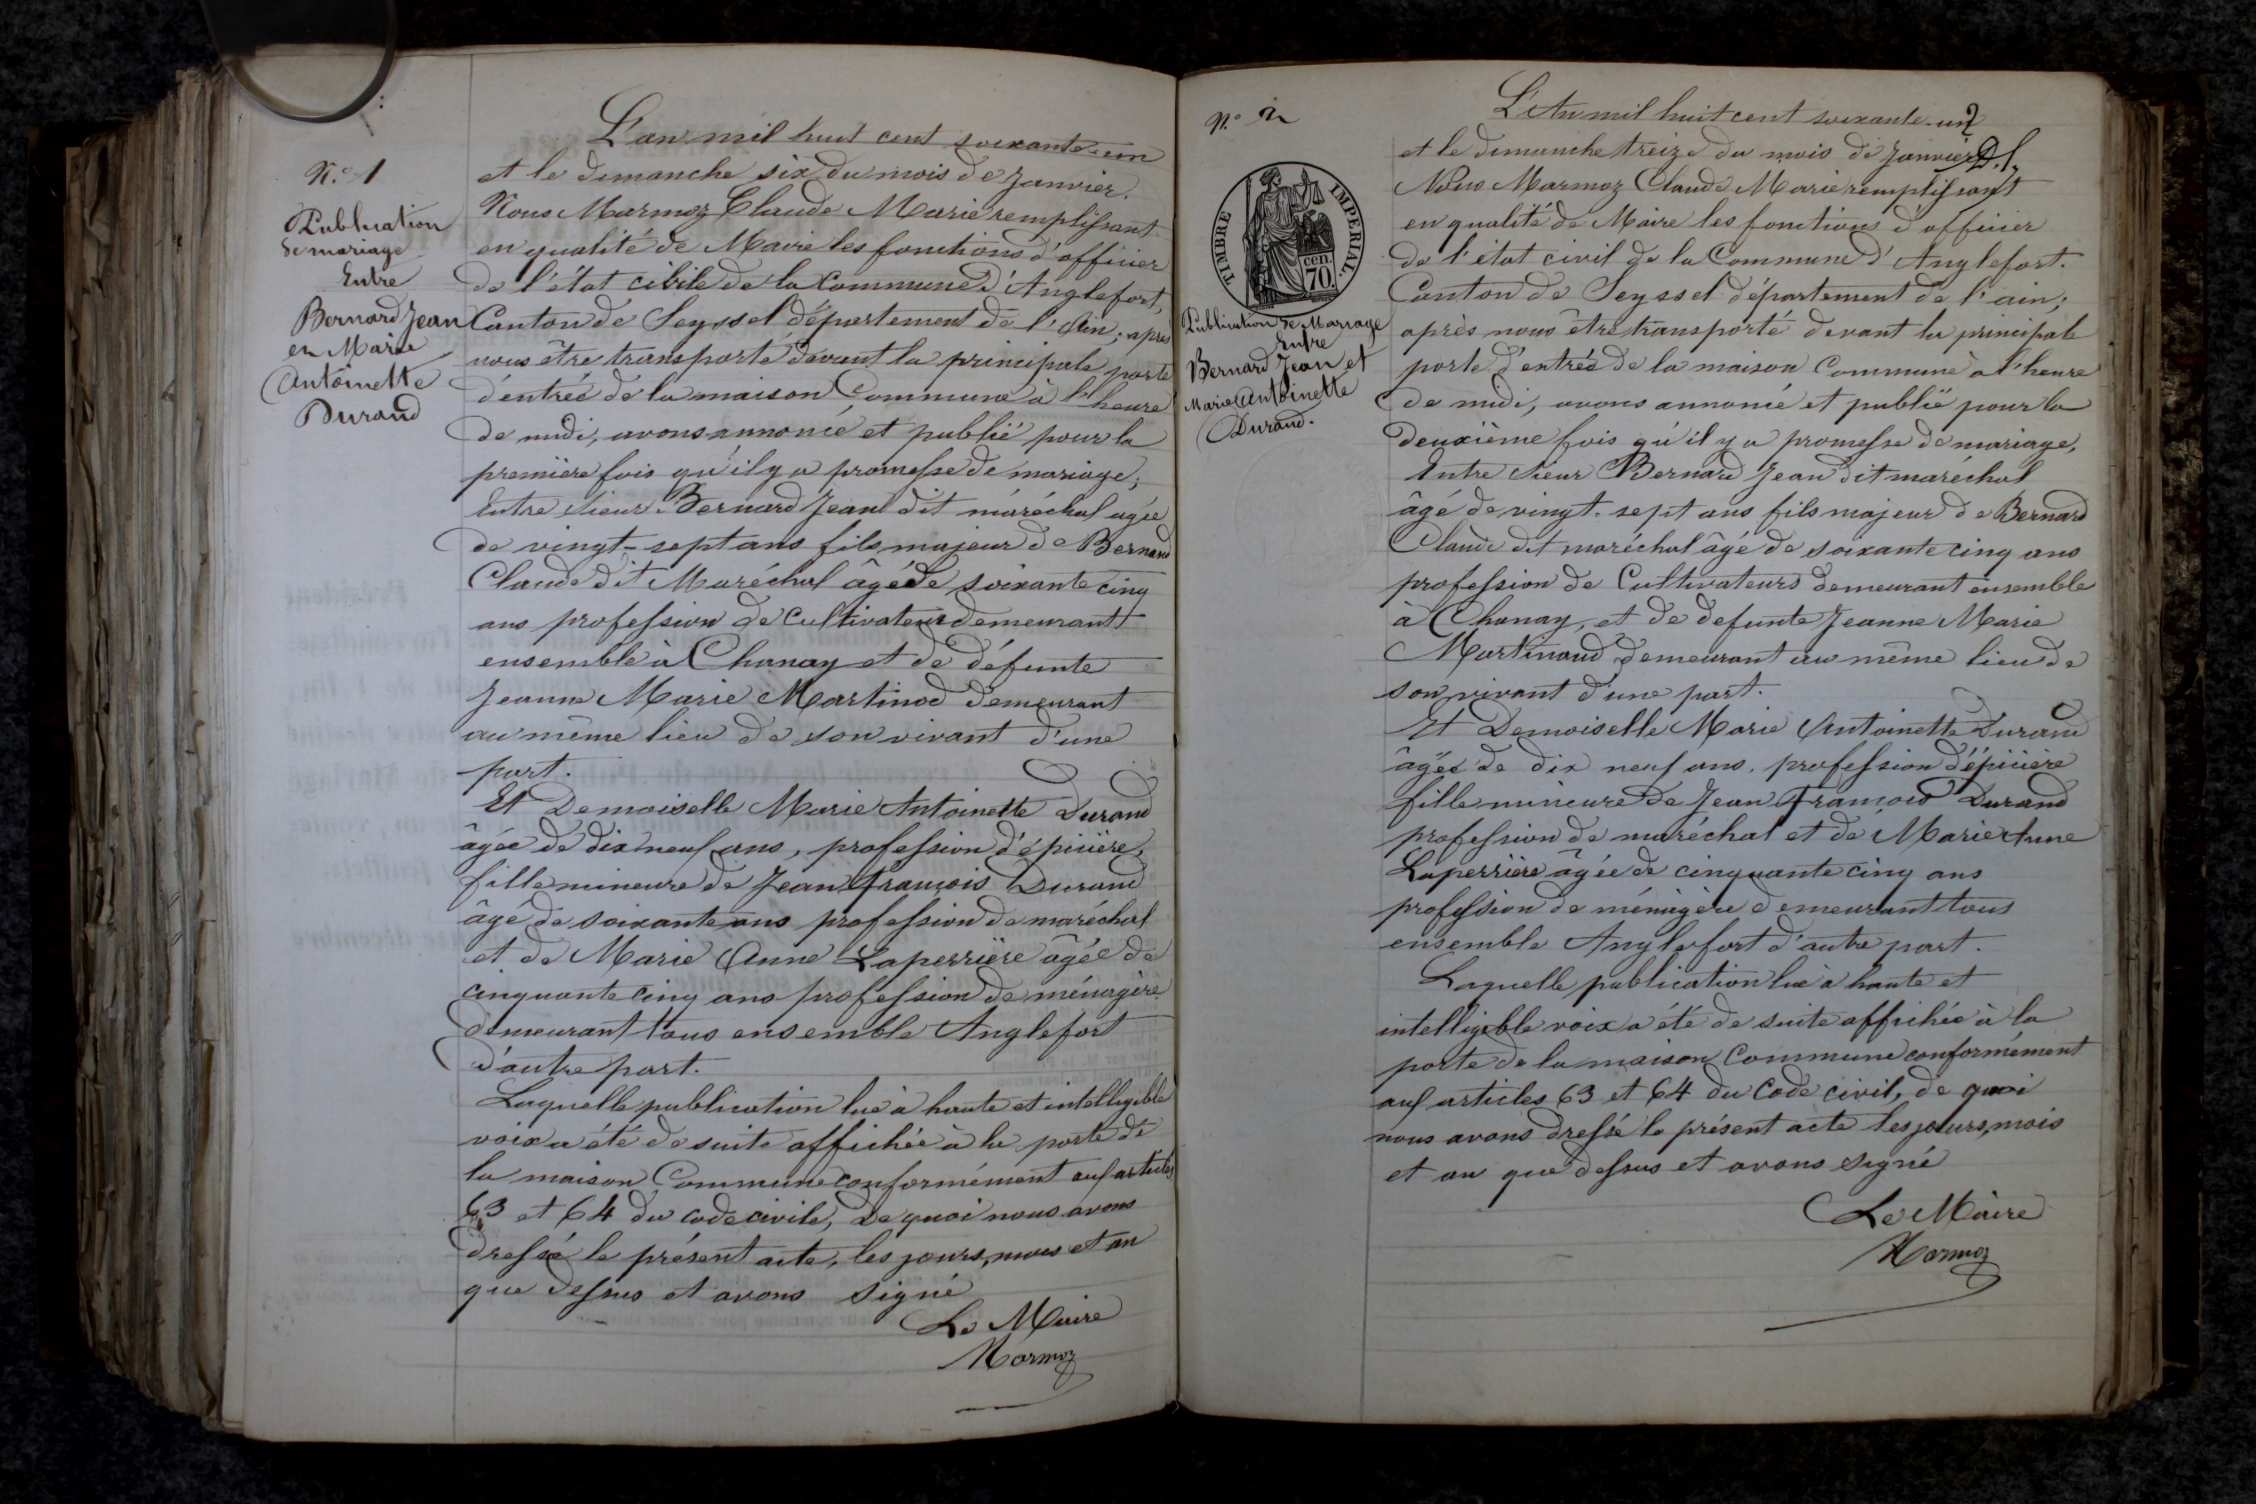 N.º 1
Publication
de mariage
Entre
Bernard Jean
et Marie
Antoinette
Durand
L'an mil huit cent soixante-un
et le dimanche six du mois de Janvier.
Nous Marmoz Claude Marie remplissant
en qualité de Maire les fonctions d'officier
de l'état cibile de la Commune d'Anglefort,
Canton de Seyssel département de l'Ain; après
nous être transporté devant la principale porte
d'entrée de la maison Commune à l'heure
de midi, avons annoncé et publié pour la
première fois qu'il y a promesse de mariage;
Entre sieur Bernard Jean dit maréchal agée
de vingt-sept ans fils majeur de Bernard
Claude dit Maréchal âgé de soixante cinq
ans profession de cultivateurs demeurant
ensemble à Chanay et de défunte
Jeanne Marie Martinod demeurant
au même lieu de son vivant d'une
part.
Et Demoiselle Marie Antoinette Durand
âgée de dix neuf ans, profession d'épicière,
fille mineure de Jean François Durand
âgé de soixante ans profession de maréchal
et de Marie Anne Laperrière âgée de
cinquante cinq ans profession de ménagère
demeurant tous ensemble Anglefort
d'autre part.
Laquelle publication lue à haute et intelligible
voix a été de suite affichée à la porte de
la maison Commune conformément aux articles
63 et 64 du code civile, de quoi nous avons
dressé le présent acte, les jours, mois et an
que dessus et avons signé
Le Maire
Marmoz
N.º 2
TIMBRE IMPERIAL.
cen.
70.
Publication de Mariage
Entre
Bernard Jean et
Marie Antoinette
Durand.
L'An mil huit cent soixante-un
et le dimanche treize du mois de Janvier
Nous Marmoz Claude Marie remplissant
en qualité de Maire les fonctions d'officier
de l'état civil de la Commune d'Anglefort.
Canton de Seyssel département de l'ain;
après nous être transporté devant la principale
porte d'entrée de la maison Commune à l'heure
de midi, avons annoncé et publié pour la
deuxième fois qu'il y a promesse de mariage,
Entre sieur Bernard Jean dit maréchal
âgé de vingt-sept ans fils majeur de Bernard
Claude dit maréchal âgé de soixante cinq ans
profession de Cultivateurs demeurant ensemble
à Chanay, et de defunte Jeanne Marie
Martinaud demeurant au même lieu de
son vivant d'une part.
Et Demoiselle Marie Antoinette Durand
âgée de dix neuf ans, profession d'épicière
fille mineure de Jean François Durand
profession de maréchal et de Marie Anne
Laperrière âgée de cinquante cinq ans
profession de ménagère demeurant tous
ensemble Anglefort d'autre part.
Laquelle publication lue à haute et
intelligible voix a été de suite affichée à la
porte de la maison Commune conformément
aux articles 63 et 64 du Code civil, de quoi
nous avons dressé le présent acte les jours, mois
et an que dessus et avons signé
Le Maire
Marmoz